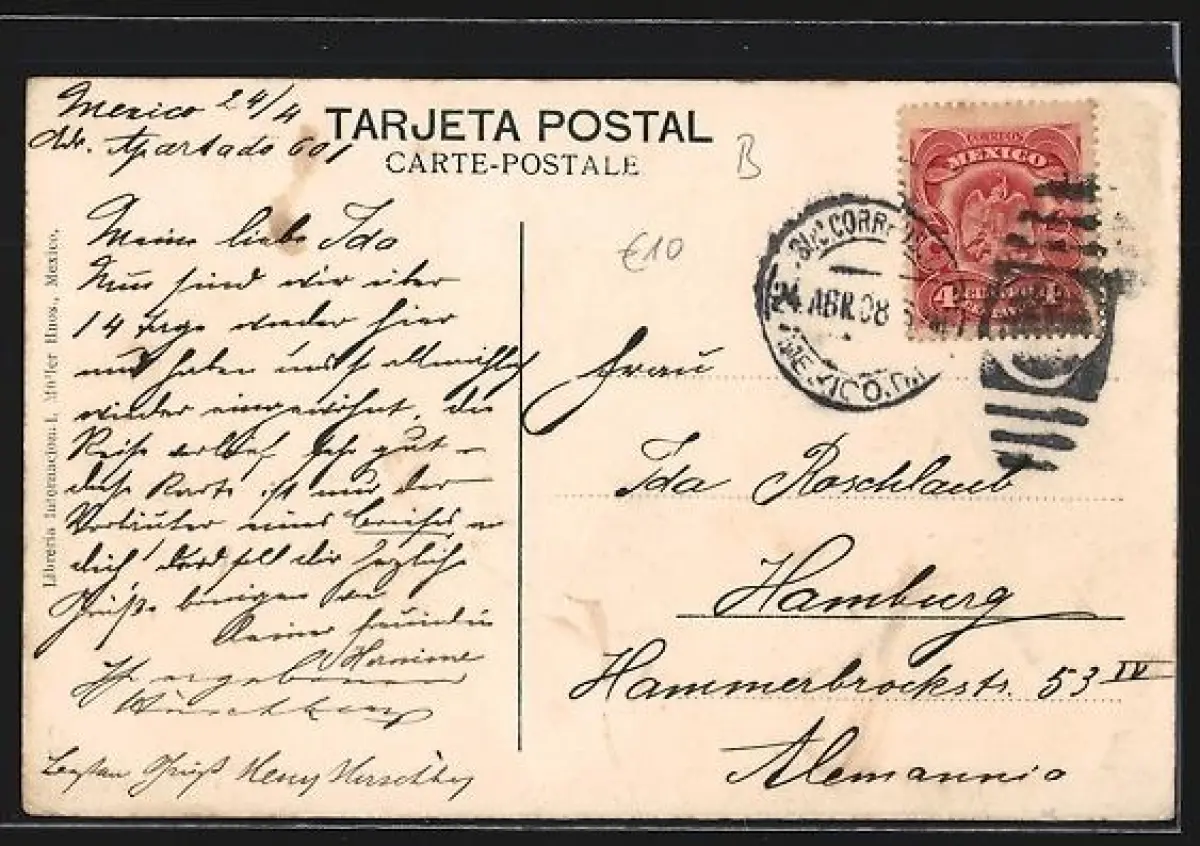 Mexico 24/4
Apartado 601
TARJETA POSTAL
CARTE-POSTALE
B
€10
CORREOS
MEXICO
4
24 ABR. 08
MEXICO. D.F.
Libreria Internacional, Müller Hnos., Mexico.
Meine liebe Ida
Nun sind wir über
14 Tage wieder hier
und haben uns allmählich
wieder eingewöhnt, die
Reise verlief sehr gut –
diese Karte ist nur der
Vorläufer eines Briefes an
dich! und soll dir herzliche
Grüße bringen von
Deiner Freundin
Hermine
Besten Gruß Henry
Frau
Ida Roschlaub
Hamburg
Hammerbrookstr. 53 IV
Alemannia